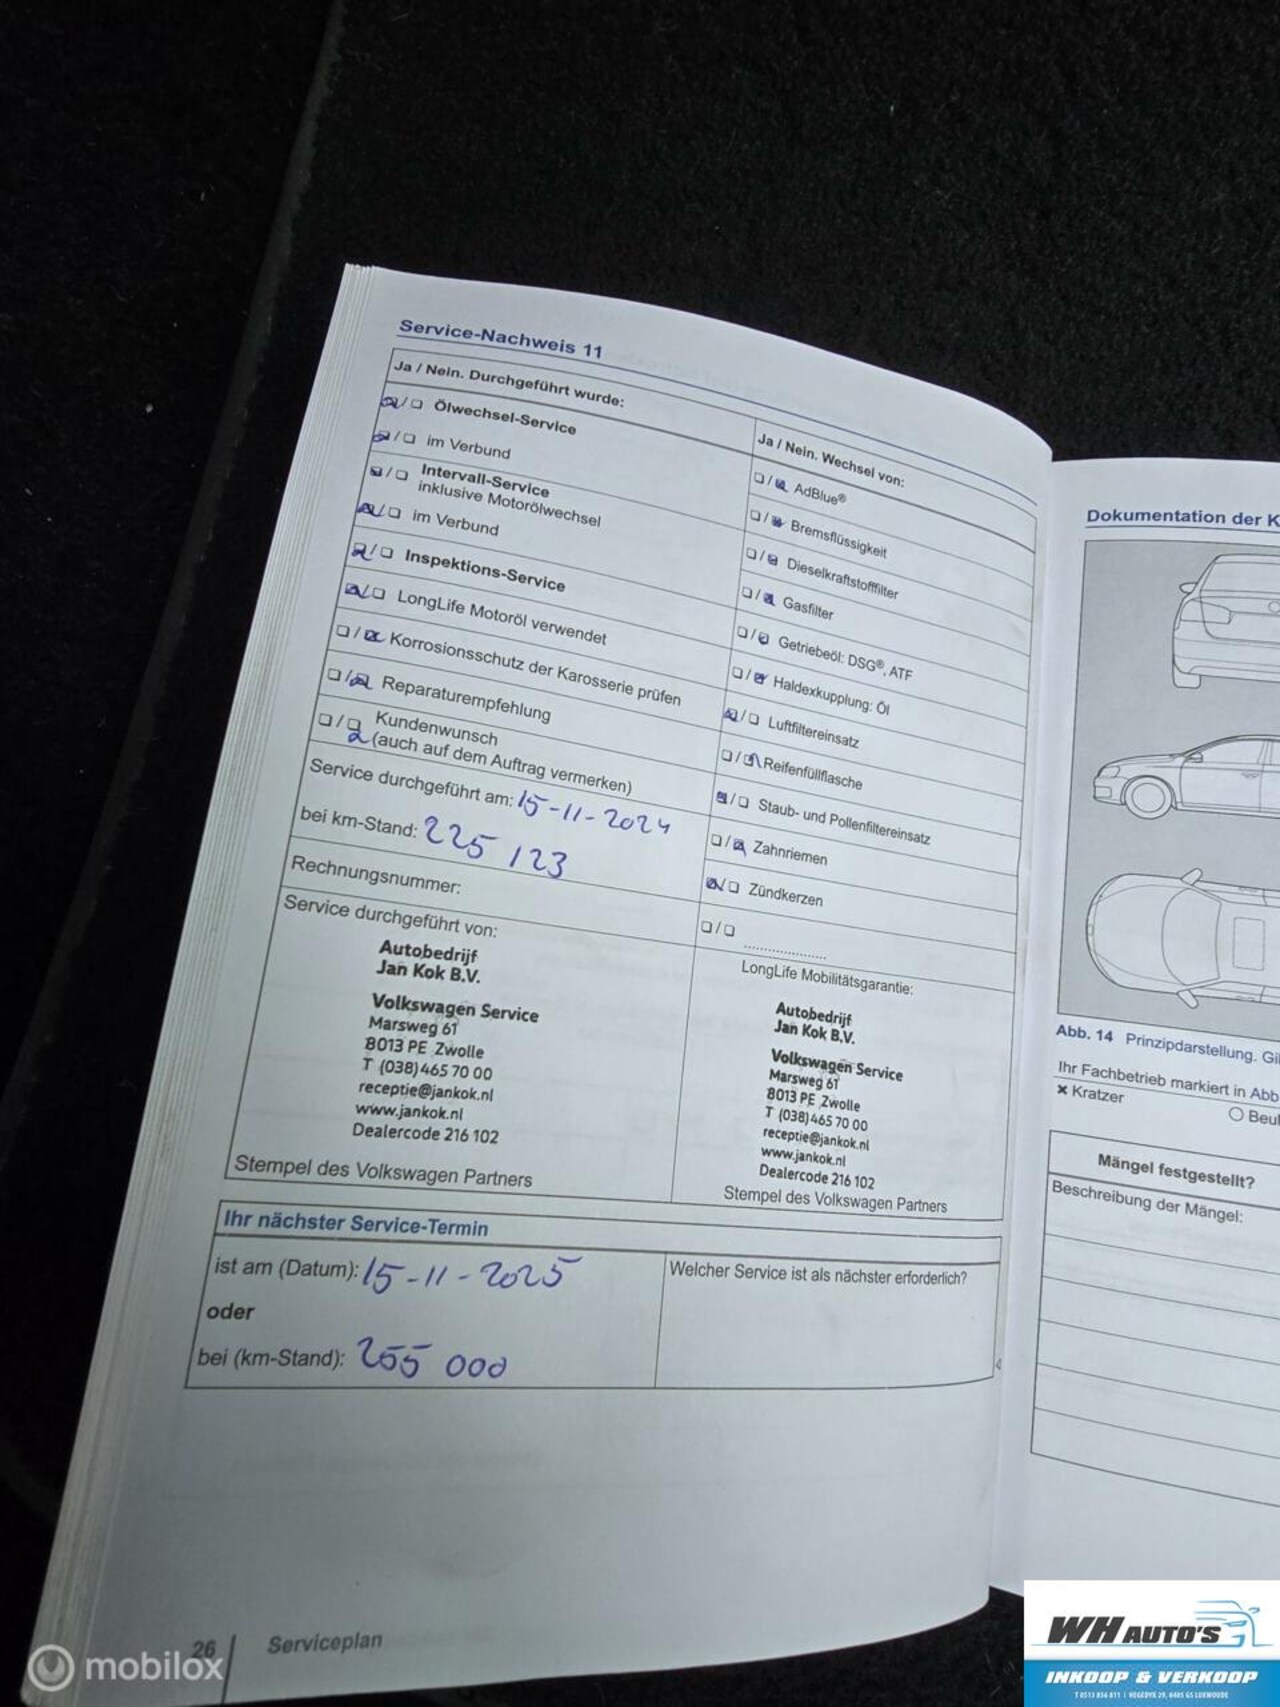 Service-Nachweis 11
Ja / Nein. Durchgeführt wurde:
❏/❏ Ölwechsel-Service
❏/❏ im Verbund
❏/❏ Intervall-Service
inklusive Motorölwechsel
❏/❏ im Verbund
❏/❏ Inspektions-Service
❏/❏ LongLife Motoröl verwendet
❏/❏ Korrosionsschutz der Karosserie prüfen
❏/❏ Reparaturempfehlung
❏/❏ Kundenwunsch
(auch auf dem Auftrag vermerken)
Service durchgeführt am: 15-11-2024
bei km-Stand: 225 123
Rechnungsnummer:
Service durchgeführt von:
Autobedrijf
Jan Kok B.V.
Volkswagen Service
Marsweg 61
8013 PE Zwolle
T (038) 465 70 00
receptie@jankok.nl
www.jankok.nl
Dealercode 216 102
Stempel des Volkswagen Partners
Ja / Nein. Wechsel von:
❏/❏ AdBlue®
❏/❏ Bremsflüssigkeit
❏/❏ Dieselkraftstofffilter
❏/❏ Gasfilter
❏/❏ Getriebeöl: DSG®, ATF
❏/❏ Haldexkupplung: Öl
❏/❏ Luftfiltereinsatz
❏/❏ Reifenfüllflasche
❏/❏ Staub- und Pollenfiltereinsatz
❏/❏ Zahnriemen
❏/❏ Zündkerzen
❏/❏ ....................
LongLife Mobilitätsgarantie:
Autobedrijf
Jan Kok B.V.
Volkswagen Service
Marsweg 61
8013 PE Zwolle
T (038) 465 70 00
receptie@jankok.nl
www.jankok.nl
Dealercode 216 102
Stempel des Volkswagen Partners
Ihr nächster Service-Termin
ist am (Datum): 15-11-2025
oder
bei (km-Stand): 255 000
Welcher Service ist als nächster erforderlich?
26 Serviceplan
Dokumentation der K
Abb. 14 Prinzipdarstellung. Gil
Ihr Fachbetrieb markiert in Abb
× Kratzer
○ Beul
Mängel festgestellt?
Beschreibung der Mängel:
mobilox
WH AUTO'S
INKOOP & VERKOOP
T 0513 856 811 | HEGEDYK 29, 8405 GS LUXWOUDE